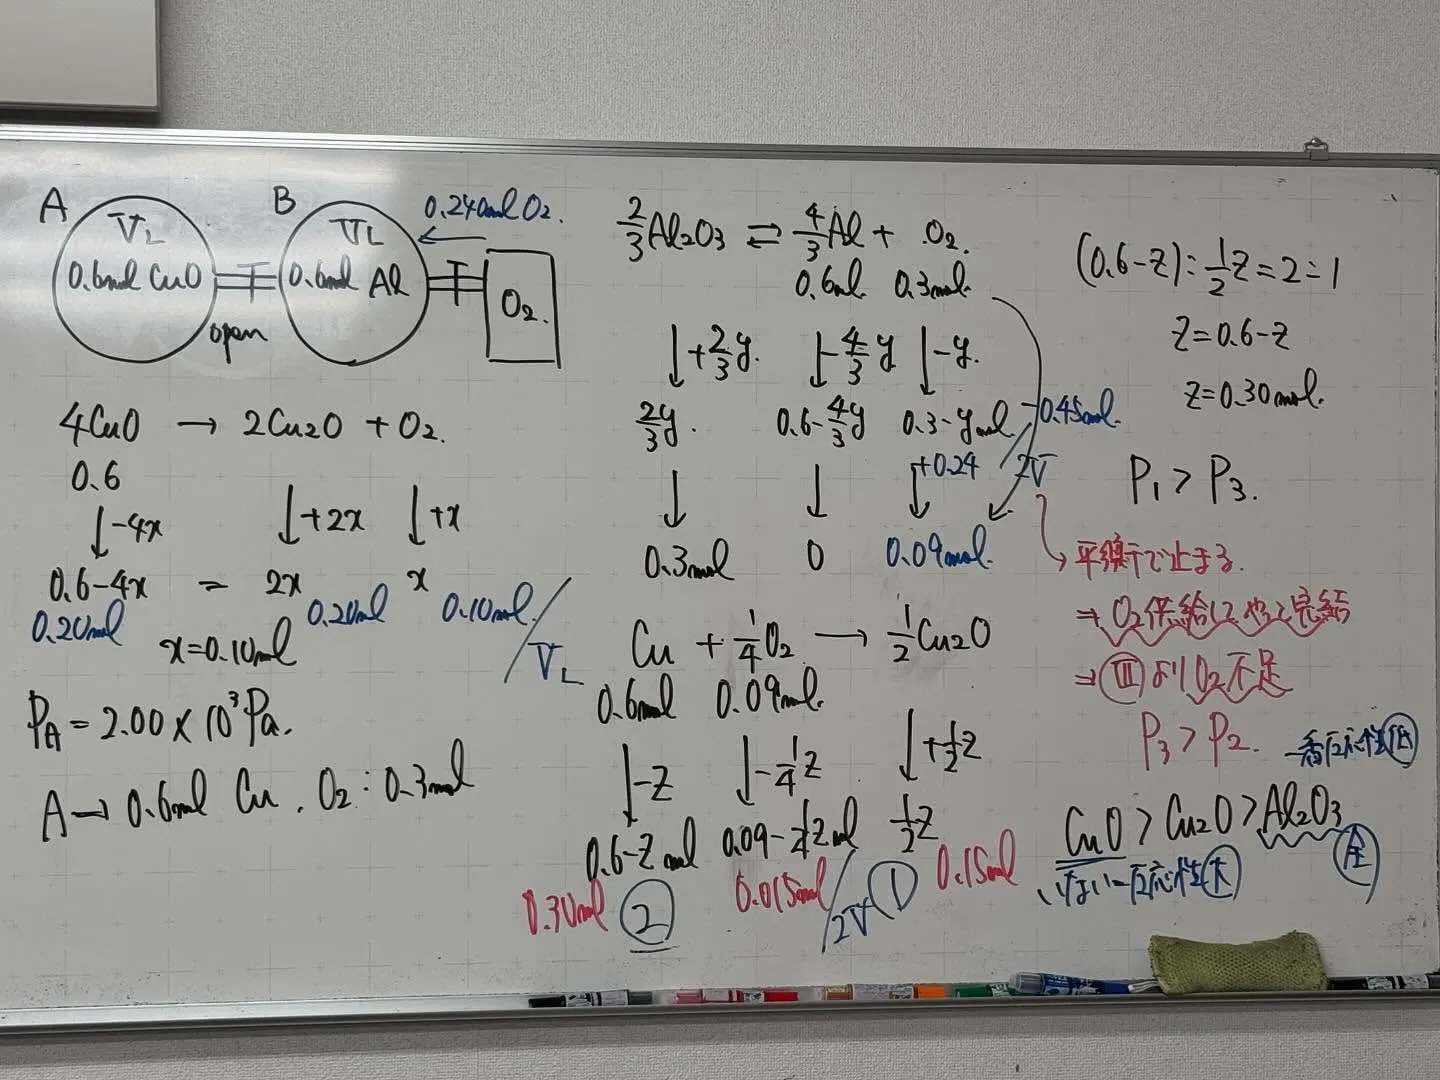 A
V L
0.6mol CuO
B
V L
0.6mol Al
0.240mol O2.
O2.
open
4CuO → 2Cu2O + O2.
0.6
↓-4x ↓+2x ↓+x
0.6-4x = 2x x
0.20mol 0.20mol 0.10mol / V L
x=0.10mol
PA = 2.00 × 10³ Pa.
A → 0.6mol Cu . O2 : 0.3mol
2/3 Al2O3 ⇌ 4/3 Al + O2.
0.6mol 0.3mol
↓+2/3 y. ↓-4/3 y ↓-y.
2y/3. 0.6-4y/3 0.3-y mol
+0.24
0.45mol / 2V
0.3mol 0 0.09mol
Cu + 1/4 O2 → 1/2 Cu2O
0.6mol 0.09mol
↓-z ↓-1/4 z ↓+1/2 z
0.6-z mol 0.09-1/4 z mol 1/2 z
0.30mol ② 0.015mol / 2V ① 0.15mol
(0.6-z) : 1/2 z = 2 : 1
z = 0.6-z
z = 0.30mol.
P1 > P3.
→ 平衡で止まる.
⇒ O2供給して完結
⇒ Ⅲ よりO2不足
P3 > P2. 一番反応性低
CuO > Cu2O > Al2O3
反応性大